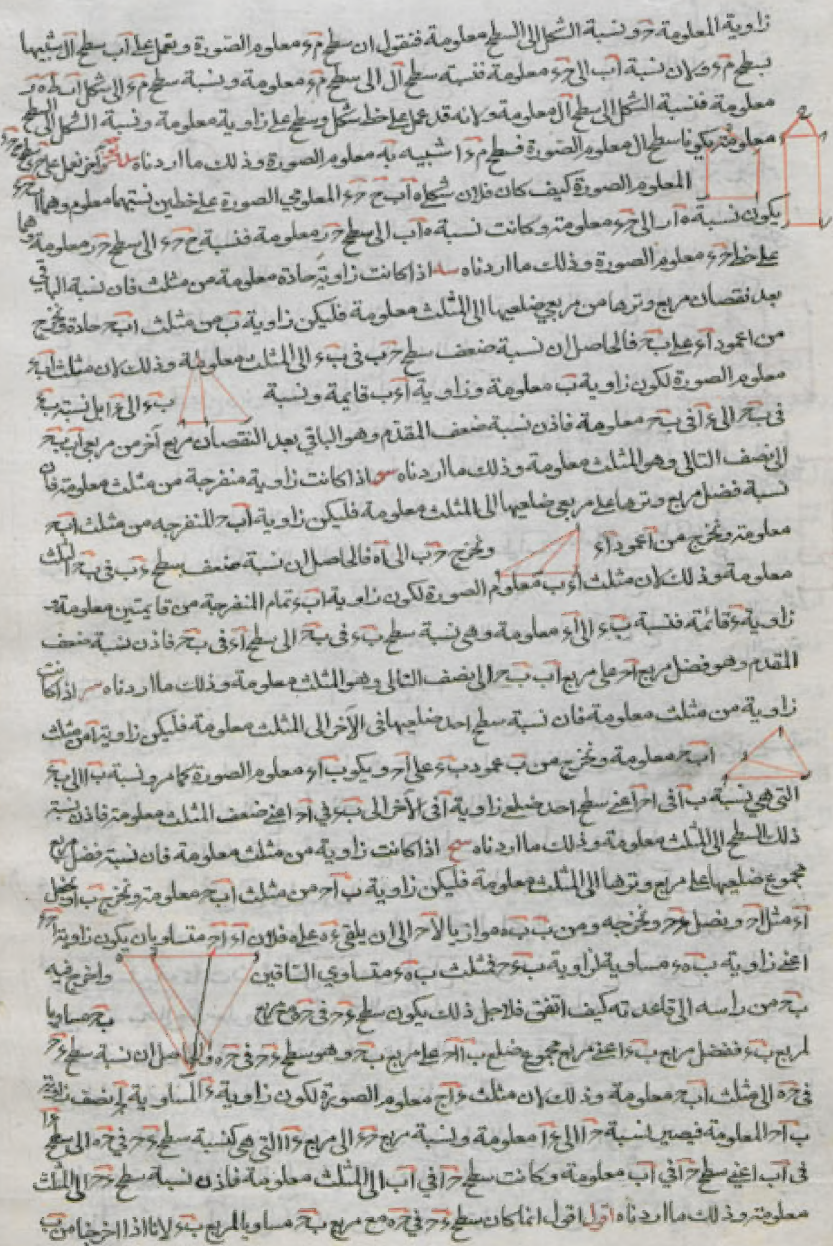 زاوية المعلومة حر ونسبة الشكل الى السطح معلومة فنقول ان سطح مء معلوم الصورة ونعمل على اب سطح ال شبيها
بسطح مء ولان نسبة اب الى حء معلومة فنسبة سطح ال الى سطح مء معلومة ونسبة سطح مء الى شكل
معلومة فنسبة الشكل الى سطح ال معلومة ولانه قد عمل على خط شكل وسطح على زاوية معلومة ونسبة الشكل الى السطح
معلومة يكون سطح ال معلوم الصورة فسطح مء الشبيه به معلوم الصورة وذلك ما اردناه
المعلوم الصورة كيف كان فلان شكلاه اب ح حء المعلومي الصورة على خطين نسبتهما معلومة وهما
يكون نسبة الى حء معلومة وكانت نسبة ه اب الى سطح حر معلومة فنسبة ح حء الى سطح حر معلومة وهما
على خط حء معلوم الصورة وذلك ما اردناه سه اذا كانت زاوية حادة معلومة من مثلث فان نسبة الباقي
بعد نقصان مربع وترها من مربعي ضلعيها الى المثلث معلومة فليكن زاوية ب من مثلث ابح حادة ونخرج
من ا عمود اء على بح فالحاصل ان نسبة ضعف سطح حب في بء الى المثلث معلومة وذلك لان مثلث ابء
معلوم الصورة لكون زاوية ب معلومة وزاوية اءب قايمة ونسبة بء الى ءا بل نسبة بء
في بح الى ءا في بح معلومة فاذن نسبة ضعف المقدم وهو الباقي بعد النقصان مربع اح من مربعي اب بح
الى نصف التالي وهو المثلث معلومة وذلك ما اردناه سو اذا كانت زاوية منفرجة من مثلث معلومة فان
نسبة فضل مربع وترها على مربعي ضلعيها الى المثلث معلومة فليكن زاوية ابح المنفرجة من مثلث ابح
معلومة ونخرج من ا عمود اء ونخرج حب الى ه فالحاصل ان نسبة ضعف سطح ءب في بح الى المثلث
معلومة وذلك لان مثلث اءب معلوم الصورة لكون زاوية ابء تمام المنفرجة من قايمتين معلومة و
زاوية ء قائمة فنسبة بء الى اء معلومة وهي نسبة سطح بء في بح الى سطح اء في بح فاذن نسبة ضعف
المقدم وهو فضل مربع اح على مربع اب بح الى نصف التالي وهو المثلث معلومة وذلك ما اردناه سر اذا كانت
زاوية من مثلث معلومة فان نسبة سطح احد ضلعيها في الآخر الى المثلث معلومة فليكن زاوية ا من مثلث
ابح معلومة ونخرج من ب عمود بء على اح ويكون باء معلوم الصورة كما مر ونسبة با الى بء
التي هي نسبة با في اح اعني سطح احد ضلعي زاوية ا في الآخر الى بء في اح اعني ضعف المثلث معلومة فاذن نسبة
ذلك السطح الى المثلث معلومة وذلك ما اردناه سح اذا كانت زاوية من مثلث معلومة فان نسبة فضل مربع
مجموع ضلعيها على مربع وترها الى المثلث معلومة فليكن زاوية باح من مثلث ابح معلومة ونخرج با ونجعل
اء مثل اح ونصل ءح ونخرجه ومن ب به موازيا لاح الى ان يلقي ءح على ه فلان اء اح متساويان يكون زاوية
اعني زاوية بهء مساوية لزاوية بءح فمثلث بهء متساوي الساقين واخرج فيه
بح من راسه الى قاعدته كيف اتفق فلاجل ذلك يكون سطح ءح في حه مع مربع بح مساويا
لمربع بء ففضل مربع بء اعني مربع مجموع ضلعي با اح على مربع بح وهو سطح ءح في حه والحاصل ان نسبة سطح ءح
في حه الى مثلث ابح معلومة وذلك لان مثلث ءاح معلوم الصورة لكون زاوية ء المساوية لنصف زاوية
باح المعلومة فيصير نسبة حا الى ءا معلومة ونسبة مربع حء الى مربع ءا التي هي كنسبة سطح ءح في حه الى سطح حا
في اب اعني سطح حا في اب معلومة وكانت سطح حا في اب الى المثلث معلومة فاذن نسبة سطح ءح الى المثلث
معلومة وذلك ما اردناه اقول اقول انما كان سطح ءح في حه مع مربع بح مساويا لمربع بء لانا اذا اخرجنا من ب